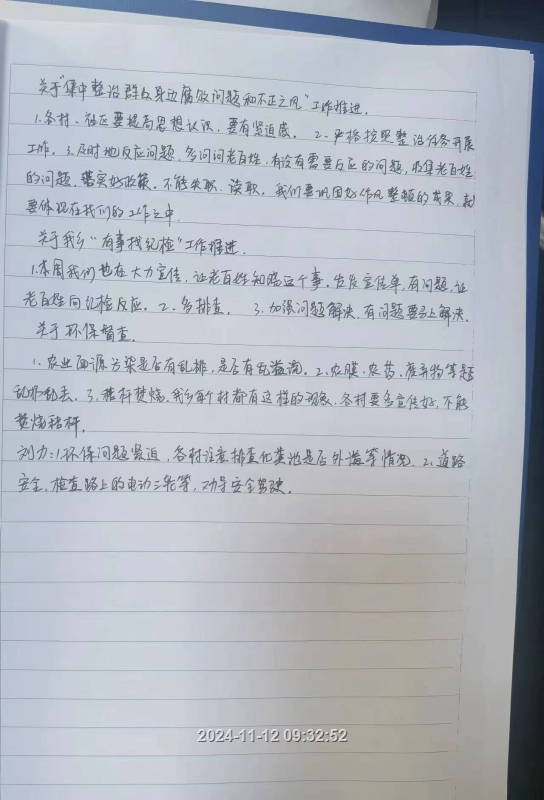 关于“集中整治群众身边腐败问题和不正之风”工作推进.
1.各村、社区要提高思想认识,要有紧迫感. 2、严格按照整治任务开展
工作. 3.及时地反应问题,多问问老百姓,有没有需要反应的问题,收集老百姓
的问题.落实好政策.不能失职、渎职.我们要巩固好作风整顿的成果,就
要体现在我们的工作之中.
关于我乡“有事找纪检”工作推进.
1.本周我们也在大力宣传,让老百姓知晓这个事.出发宣传单,有问题,让
老百姓向纪检反应. 2、多排查. 3.加强问题解决,有问题要马上解决.
关于环保督查.
1、农业面源污染是否有乱排,是否有乱溢流. 2、农膜、农药、废弃物等
乱扔乱丢. 3.秸秆焚烧,我乡每个村都有这样的现象.各村要多宣传好,不能
焚烧秸秆.
刘力:1.环保问题紧迫,各村注意排查化粪池是否外溢等情况. 2、道路
安全.检查路上的电动三轮等,劝导安全驾驶.
2024-11-12 09:32:52